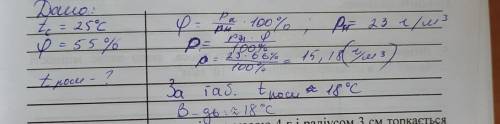 Дано:
t_c = 25°C
φ = 55%
t роси - ?
φ = ρ_a / ρ_н · 100% ; ρ_н = 23 г/м³
ρ = ρ_н · φ / 100%
ρ = 23 · 66% / 100% = 15,18 (г/м³)
За таб. t роси ≈ 18°C
В-дь: ≈ 18°C
4 г і радіусом 3 см торкається